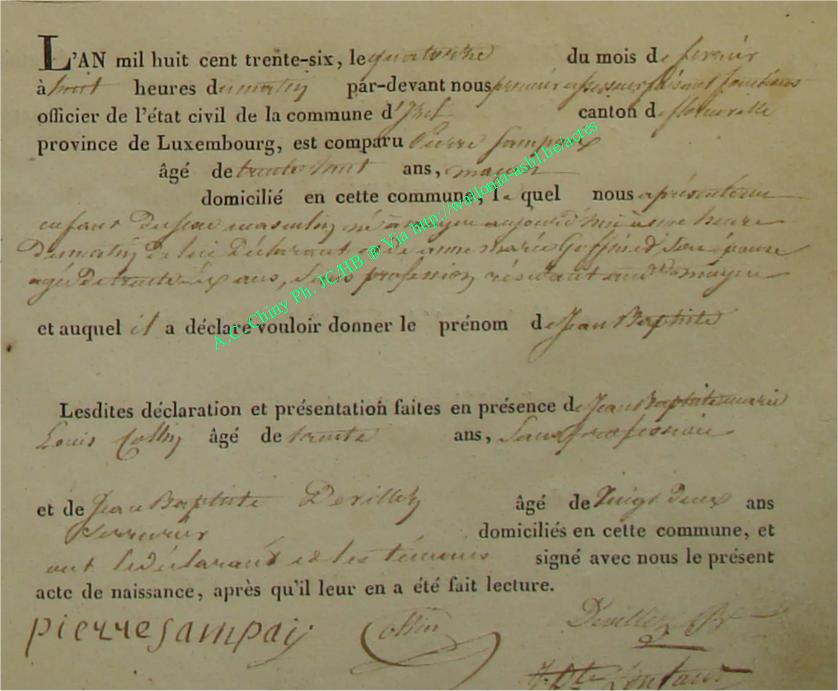 L'AN mil huit cent trente-six, le quatorze du mois de fevrier
à huit heures du matin par-devant nous premier assesseur faisant fonctions
officier de l'état civil de la commune d'Izel canton de florenville
province de Luxembourg, est comparu Pierre Sampaix
âgé de trente ans, maçon
domicilié en cette commune, le quel nous a présenté un
enfant du sexe masculin né aujourd'hui à une heure
Du matin de lui Déclarant et de anne marie Goffinet Son épouse
agée De trente six ans, Sans profession résidant
et auquel il a déclaré vouloir donner le prénom de Jean Baptiste
Lesdites déclaration et présentation faites en présence de Jean Baptiste marie
Louis Collin âgé de trente ans, Sans profession
et de Jean Baptiste Devillez âgé de Vingt Deux ans
Serrurier domiciliés en cette commune, et
ont le Déclarant et les témoins signé avec nous le présent
acte de naissance, après qu'il leur en a été fait lecture.
pierre Sampaix Collin Devillez
A.C. Chiny Ph. JC/HB ® Via http://wallonia-asbl.be/actes